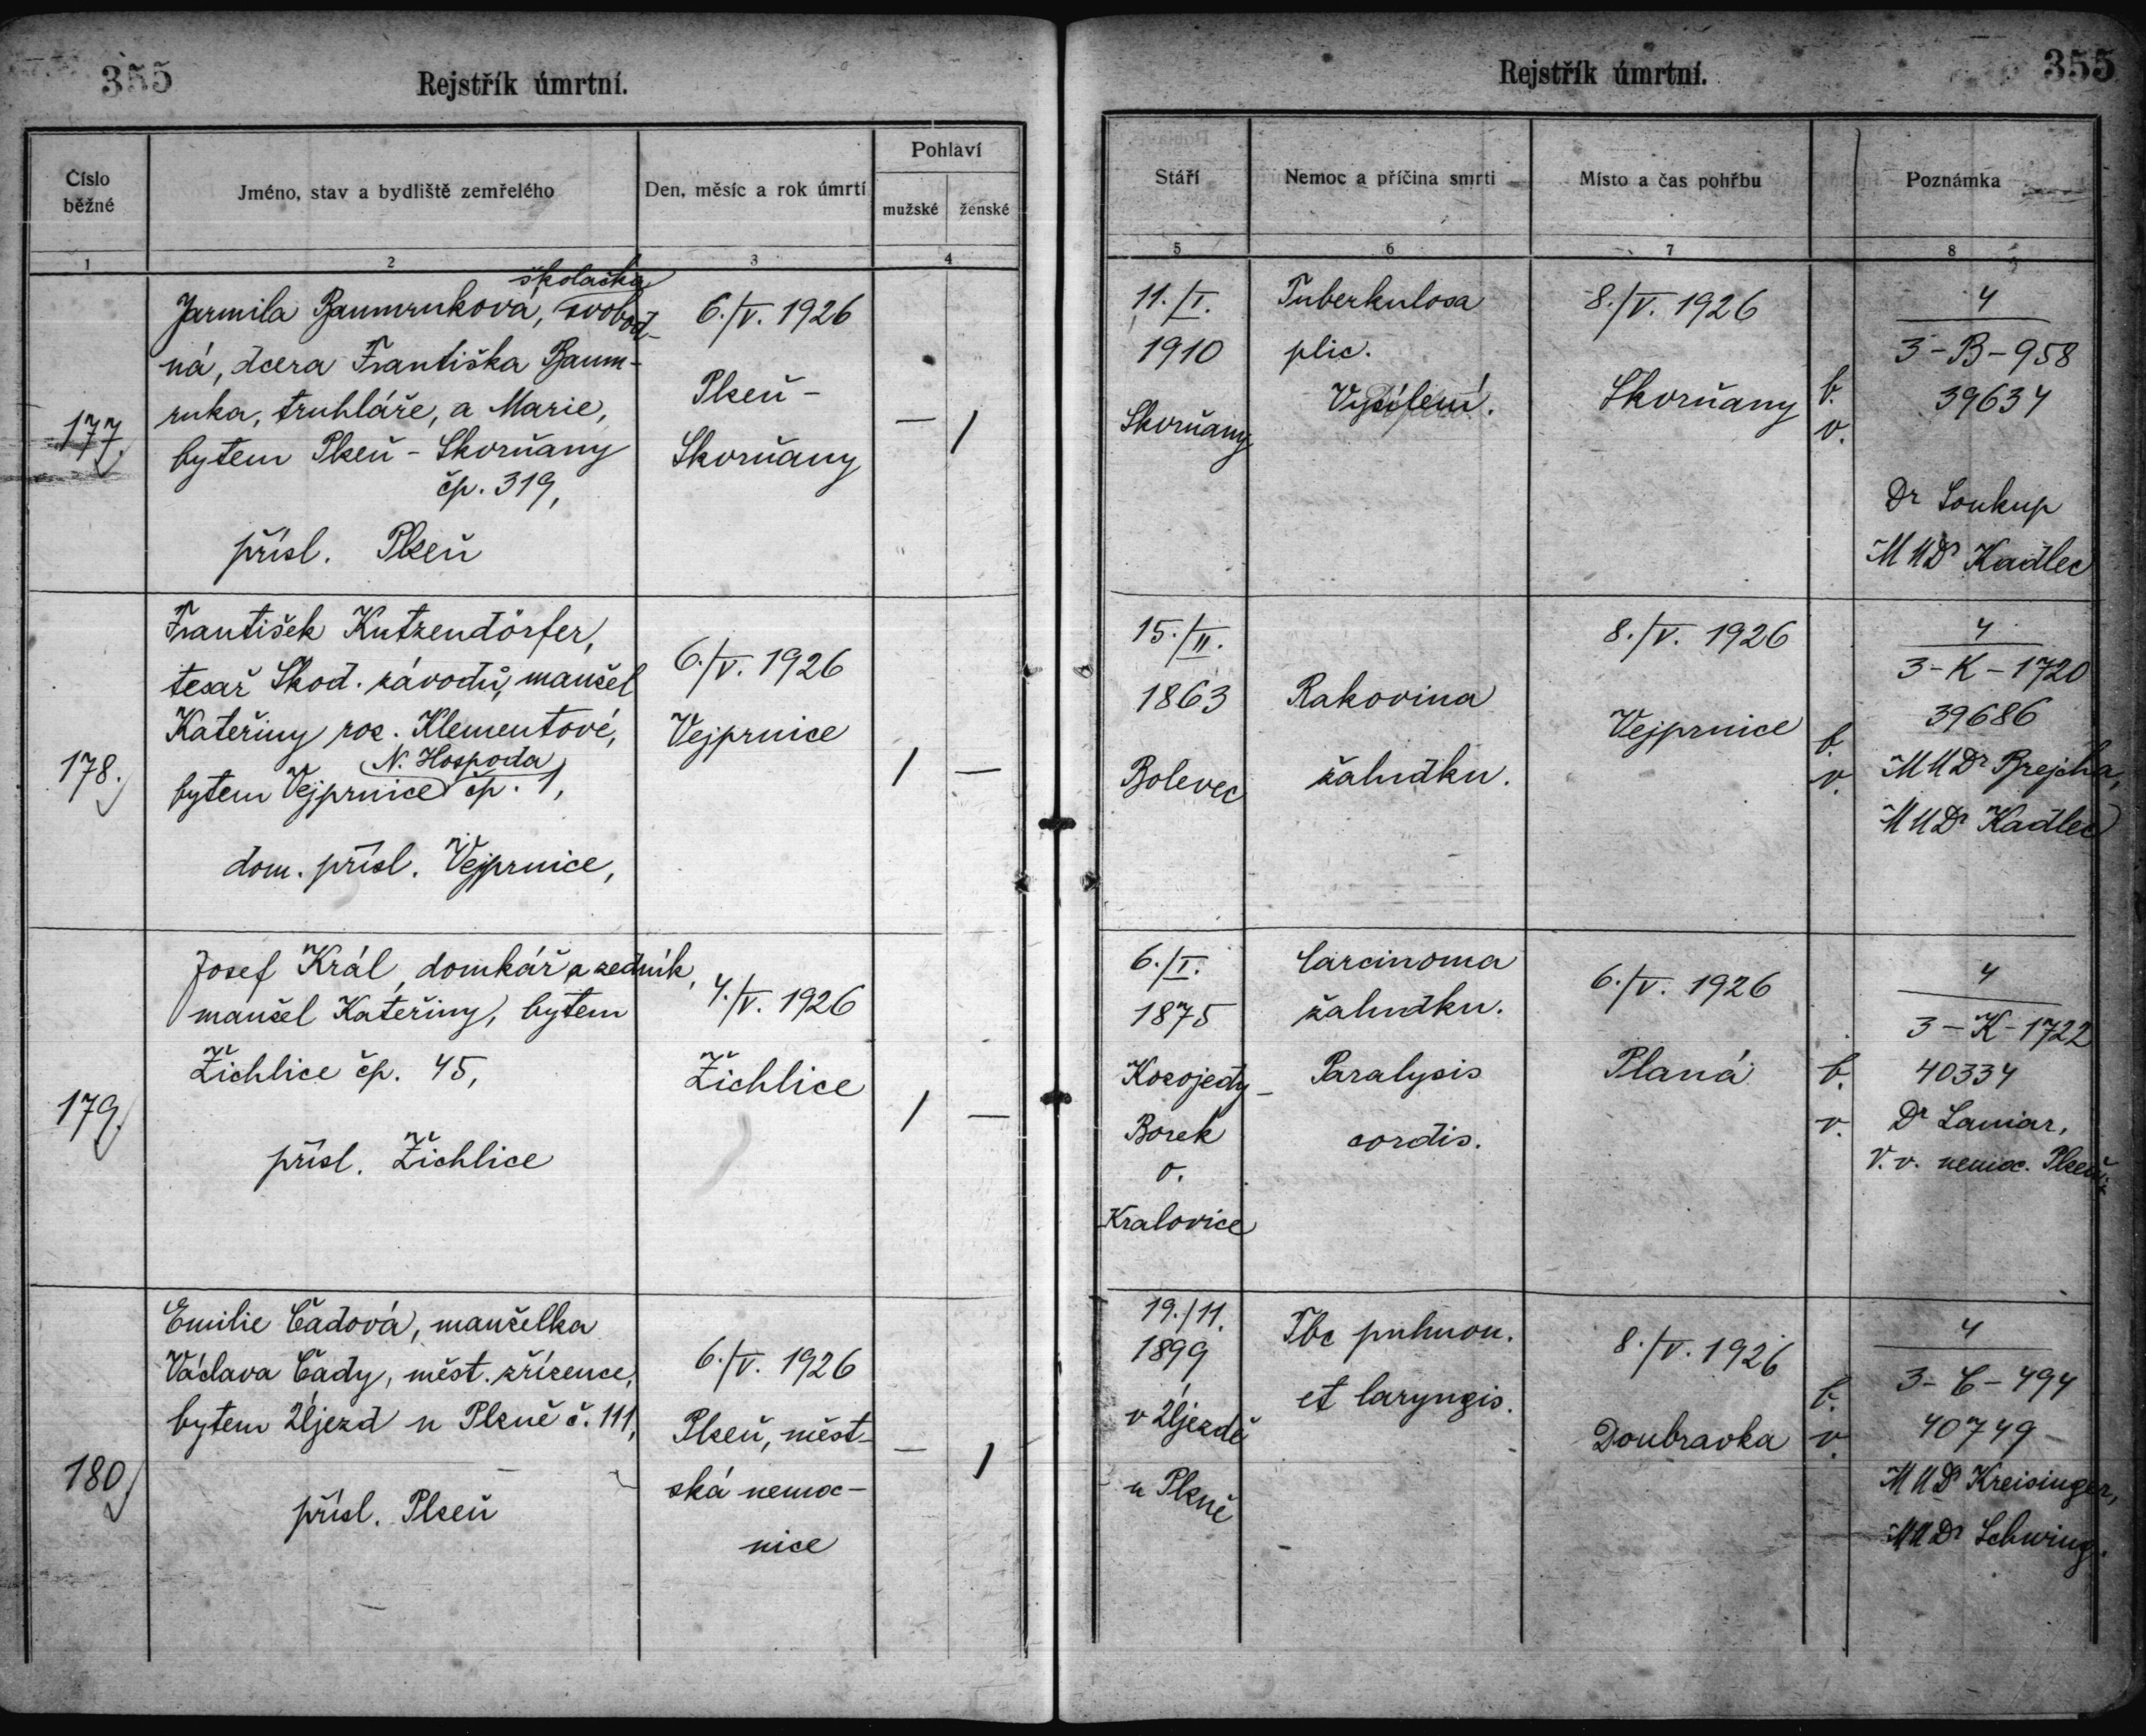 355
Rejstřík úmrtní.
Číslo běžné
Jméno, stav a bydliště zemřelého
Den, měsíc a rok úmrtí
Pohlaví
mužské
ženské
1
2
3
4
školačka
Jarmila Baumruková, svobod-
ná, dcera Františka Baum-
ruka, truhláře, a Marie,
177.
bytem Plzeň - Skvrňany
čp. 319,
přísl. Plzeň
6./V. 1926
Plzeň -
Skvrňany
—
/
František Kutzendörfer,
tesař Škod. závodů, manžel
Kateřiny roz. Klementové,
N. Hospoda
178.
bytem Vejprnice čp. 1,
dom. přísl. Vejprnice,
6./V. 1926
Vejprnice
/
—
Josef Král, domkář a zedník,
manžel Kateřiny, bytem
Žichlice čp. 45,
179.
přísl. Žichlice
4./V. 1926
Žichlice
/
—
Emilie Čadová, manželka
Václava Čady, měst. zřízence,
bytem Újezd u Plzně č. 111,
180
přísl. Plzeň
6./V. 1926
Plzeň, měst-
ská nemoc-
nice
—
/
355
Rejstřík úmrtní.
Stáří
Nemoc a příčina smrti
Místo a čas pohřbu
Poznámka
5
6
7
8
11./I.
1910
Skvrňany
Tuberkulosa
plic.
Vysílení.
8./V. 1926
Skvrňany
b.
v.
4
3-B-958
39634
Dr Soukup
MUDr Kadlec
15./II.
1863
Bolevec
Rakovina
žaludku.
8./V. 1926
Vejprnice
b.
v.
4
3-K-1720
39686
MUDr Brejcha,
MUDr Kadlec
6./I.
1875
Kozojedy-
Borek
o.
Kralovice
Carcinoma
žaludku.
Paralysis
cordis.
6./V. 1926
Planá
b.
v.
4
3-K-1722
40334
Dr Laniar,
V. v. nemoc. Plzeň.
19./11.
1899
v Újezdě
u Plzně
Tbc pulmon.
et laryngis.
8./V. 1926
Doubravka
b.
v.
4
3-C-494
40749
MUDr Kreisinger,
MUDr Schwing.